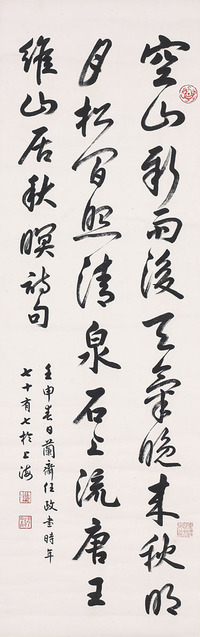 空山新雨後天氣晚来秋明
月松间照清泉石上流唐王
維山居秋暝詩句
壬申春日蘭齋任政書時年
七十有七於上海